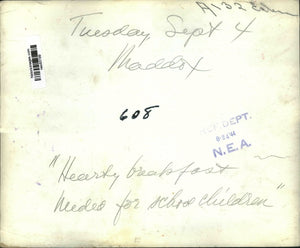 Tuesday Sept 4
Maddox
608
DEPT.
N.E.A.
"Hearty breakfast
needed for school children"